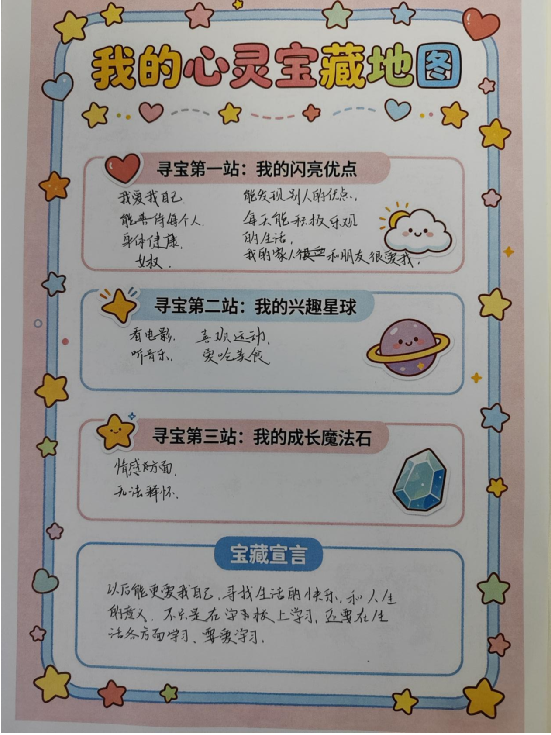 我的心灵宝藏地图
寻宝第一站：我的闪亮优点
我爱我自己
能发现别人的优点，
能善待每个人
每天能积极乐观
身体健康
的生活，
我的家人和朋友很爱我．
寻宝第二站：我的兴趣星球
看电影．喜欢运动．
听音乐．爱吃美食
寻宝第三站：我的成长魔法石
情感方面．
无法释怀．
宝藏宣言
以后能更爱我自己，寻找生活的快乐，和人生
的意义．不只是在学校上学习，还要在生
活各方面学习．要爱学习．